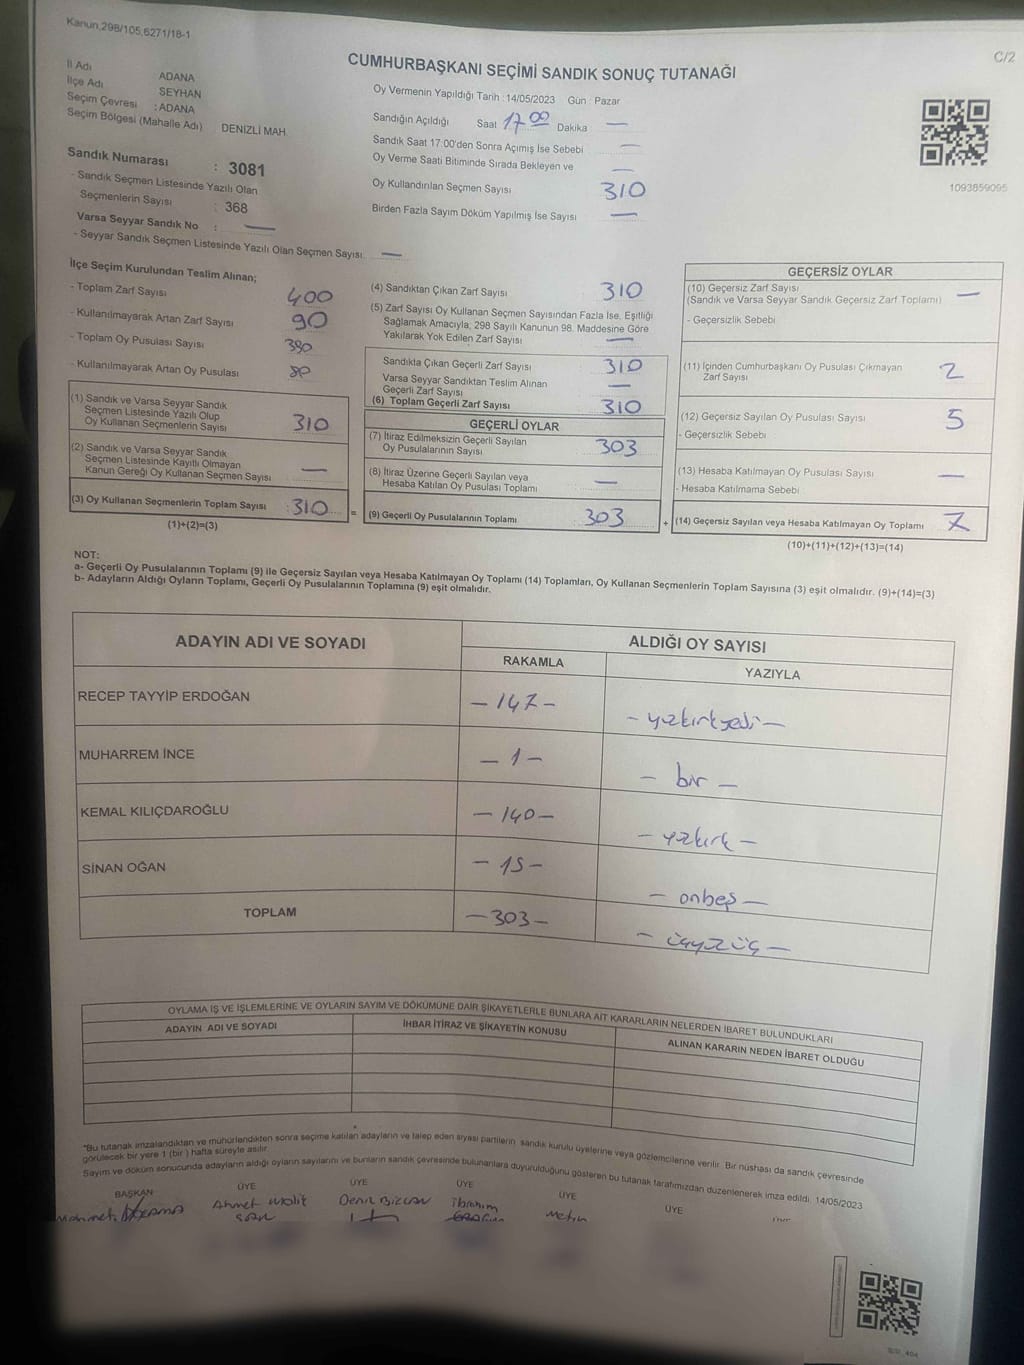 Kanun,298/105,6271/18-1
C/2
CUMHURBAŞKANI SEÇİMİ SANDIK SONUÇ TUTANAĞI
İl Adı ADANA
İlçe Adı SEYHAN
Seçim Çevresi : ADANA
Seçim Bölgesi (Mahalle Adı) DENİZLİ MAH.
Sandık Numarası : 3081
- Sandık Seçmen Listesinde Yazılı Olan
Seçmenlerin Sayısı : 368
Varsa Seyyar Sandık No : —
- Seyyar Sandık Seçmen Listesinde Yazılı Olan Seçmen Sayısı. —
Oy Vermenin Yapıldığı Tarih : 14/05/2023 Gün : Pazar
Sandığın Açıldığı Saat 17.00 Dakika —
Sandık Saat 17:00'den Sonra Açımış İse Sebebi —
Oy Verme Saati Bitiminde Sırada Bekleyen ve —
Oy Kullandırılan Seçmen Sayısı 310
Birden Fazla Sayım Döküm Yapılmış İse Sayısı —
1093859095
İlçe Seçim Kurulundan Teslim Alınan;
- Toplam Zarf Sayısı 400
- Kullanılmayarak Artan Zarf Sayısı 90
- Toplam Oy Pusulası Sayısı 390
- Kullanılmayarak Artan Oy Pusulası 80
(1) Sandık ve Varsa Seyyar Sandık
Seçmen Listesinde Yazılı Olup
Oy Kullanan Seçmenlerin Sayısı 310
(2) Sandık ve Varsa Seyyar Sandık
Seçmen Listesinde Kayıtlı Olmayan
Kanun Gereği Oy Kullanan Seçmen Sayısı —
(3) Oy Kullanan Seçmenlerin Toplam Sayısı : 310
(1)+(2)=(3)
(4) Sandıktan Çıkan Zarf Sayısı 310
(5) Zarf Sayısı Oy Kullanan Seçmen Sayısından Fazla İse, Eşitliği
Sağlamak Amacıyla, 298 Sayılı Kanunun 98. Maddesine Göre
Yakılarak Yok Edilen Zarf Sayısı —
Sandıkta Çıkan Geçerli Zarf Sayısı 310
Varsa Seyyar Sandıktan Teslim Alınan
Geçerli Zarf Sayısı —
(6) Toplam Geçerli Zarf Sayısı 310
GEÇERLİ OYLAR
(7) İtiraz Edilmeksizin Geçerli Sayılan
Oy Pusulalarının Sayısı 303
(8) İtiraz Üzerine Geçerli Sayılan veya
Hesaba Katılan Oy Pusulası Toplamı —
= (9) Geçerli Oy Pusulalarının Toplamı 303
GEÇERSİZ OYLAR
(10) Geçersiz Zarf Sayısı
(Sandık ve Varsa Seyyar Sandık Geçersiz Zarf Toplamı) —
- Geçersizlik Sebebi
(11) İçinden Cumhurbaşkanı Oy Pusulası Çıkmayan
Zarf Sayısı 2
(12) Geçersiz Sayılan Oy Pusulası Sayısı 5
- Geçersizlik Sebebi
(13) Hesaba Katılmayan Oy Pusulası Sayısı —
- Hesaba Katılmama Sebebi
+ (14) Geçersiz Sayılan veya Hesaba Katılmayan Oy Toplamı 7
(10)+(11)+(12)+(13)=(14)
NOT:
a- Geçerli Oy Pusulalarının Toplamı (9) ile Geçersiz Sayılan veya Hesaba Katılmayan Oy Toplamı (14) Toplamları, Oy Kullanan Seçmenlerin Toplam Sayısına (3) eşit olmalıdır. (9)+(14)=(3)
b- Adayların Aldığı Oyların Toplamı, Geçerli Oy Pusulalarının Toplamına (9) eşit olmalıdır.
ADAYIN ADI VE SOYADI ALDIĞI OY SAYISI
RAKAMLA YAZIYLA
RECEP TAYYİP ERDOĞAN — 147 — — yüzkırkyedi —
MUHARREM İNCE — 1 — — bir —
KEMAL KILIÇDAROĞLU — 140 — — yüzkırk —
SİNAN OĞAN — 15 — — onbeş —
TOPLAM — 303 — — üçyüzüç —
OYLAMA İŞ VE İŞLEMLERİNE VE OYLARIN SAYIM VE DÖKÜMÜNE DAİR ŞİKAYETLERLE BUNLARA AİT KARARLARIN NELERDEN İBARET BULUNDUKLARI
ADAYIN ADI VE SOYADI İHBAR İTİRAZ VE ŞİKAYETİN KONUSU ALINAN KARARIN NEDEN İBARET OLDUĞU
*Bu tutanak imzalandıktan ve mühürlendikten sonra seçime katılan adayların ve talep eden siyasi partilerin sandık kurulu üyelerine veya gözlemcilerine verilir. Bir nüshası da sandık çevresinde
görülecek bir yere 1 (bir ) hafta süreyle asılır.
Sayım ve döküm sonucunda adayların aldığı oyların sayılarını ve bunların sandık çevresinde bulunanlara duyurulduğunu gösteren bu tutanak tarafımızdan düzenlenerek imza edildi. 14/05/2023
BAŞKAN ÜYE ÜYE ÜYE ÜYE ÜYE
Mehmet Ahmet Deniz İbrahim Metin